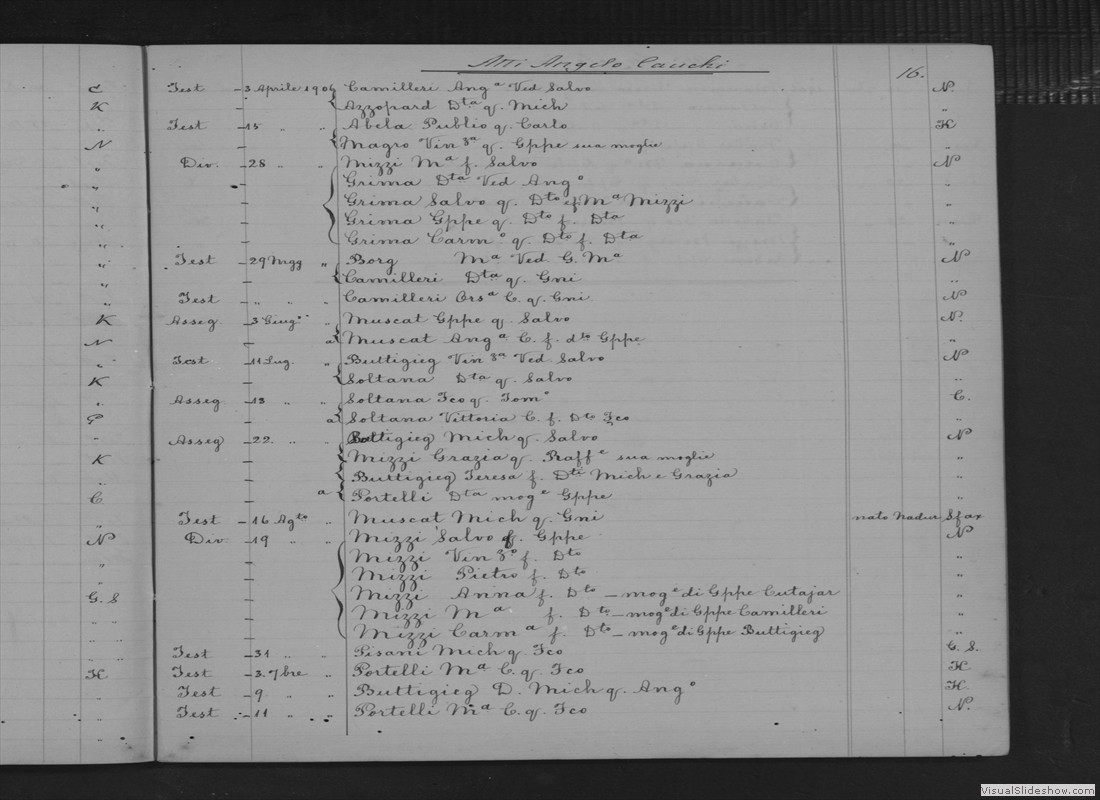 Atti Angelo Cauchi
16.
C Test - 3 Aprile 1904 Camilleri Ang^a Ved Salvo N
K - Azzopard D^ta q. Mich „
„ Test - 15 „ „ Abela Publio q. Carlo K
N - Magro Vin3^a q. Gppe sua moglie „
„ Div. - 28 „ „ Mizzi M^a f. Salvo N
„ - Grima D^ta Ved Ang^o „
„ - Grima Salvo q. D^to e f M^a Mizzi „
„ - Grima Gppe q. D^to f. D^ta „
„ - Grima Carm^o q. D^to f. D^ta „
„ Test - 29 Mgg „ Borg M^a Ved G. M^a N
„ - Camilleri D^ta q. Gni „
„ Test - „ „ „ Camilleri Ors^a C. q. Gni N
K Asseg - 3 Giug^o „ Muscat Gppe q. Salvo N.
N - a Muscat Ang^a C. f. d^to Gppe „
„ Test - 11 Lug. „ Buttigieg Vin3^a Ved Salvo N
K - Soltana D^ta q. Salvo „
„ Asseg. - 13 „ „ Soltana Fco q. Tom^o C.
P - a Soltana Vittoria C. f. D^to Fco „
„ Asseg - 22. „ „ Buttigieg Mich q. Salvo N
K - Mizzi Grazia q. Raff^e sua moglie „
„ - Buttigieg Teresa f. D^ti Mich e Grazia „
C - a Portelli D^ta mog^e Gppe „
„ Test - 16 Ag^to „ Muscat Mich q. Gni nato Nadur Sfax
N Div. - 19 „ „ Mizzi Salvo f. Gppe N
„ - Mizzi Vin3^o f. D^to „
„ - Mizzi Pietro f. D^to „
G. S - Mizzi Anna f. D^to - mog^e di Gppe Cutajar „
„ „ - Mizzi M^a f. D^to - mog^e di Gppe Camilleri „
„ - Mizzi Carm^a f. D^to - mog^e di Gppe Buttigieg „
„ „ Test - 31 „ „ Pisani Mich q. Fco C. S.
K Test - 3. 7bre „ Portelli M^a C. q. Fco K
„ Test - 9 „ „ Buttigieg D. Mich q. Ang^o K.
„ Test - 11 „ „ Portelli M^a C. q. Fco N.
VisualSlideshow.com